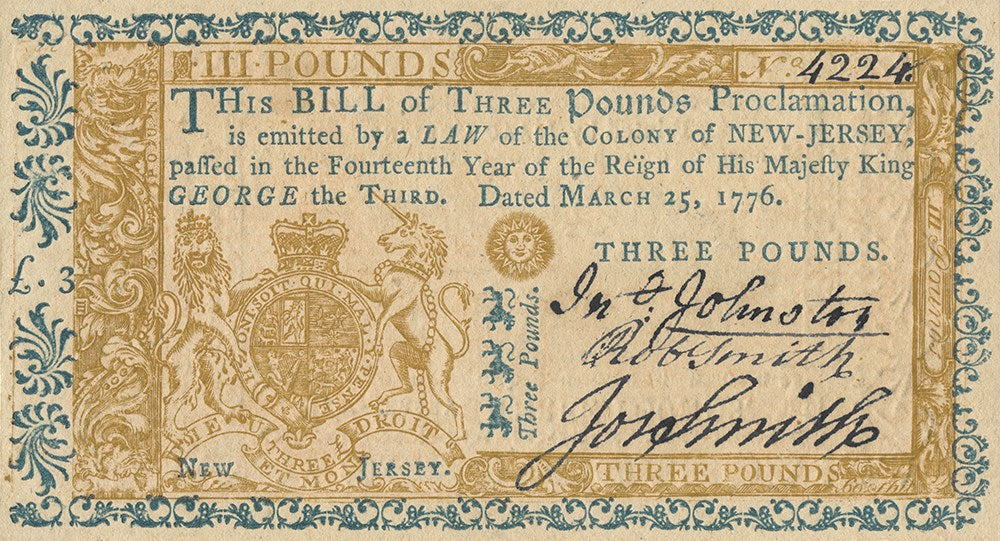 III·POUNDS
No. 4224.
THIS BILL of THREE Pounds Proclamation,
is emitted by a LAW of the COLONY of NEW-JERSEY,
paſſed in the Fourteenth Year of the Reign of His Majeſty King
GEORGE the THIRD. Dated MARCH 25, 1776.
THREE POUNDS.
£. 3
Three Pounds.
III Pounds
Jno. Johnston
Rob Smith
Jos Smith
HONI SOIT·QUI·MAL·Y·PENSE
DIEU
DROIT
THREE £
ET MON
NEW JERSEY.
THREE POUNDS